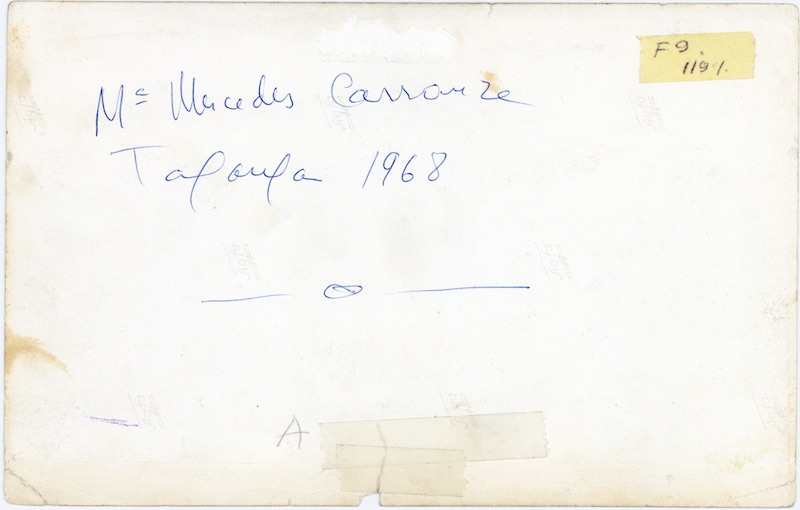 F9.
1191.
Mª Mercedes Carranza
Taganga 1968
A